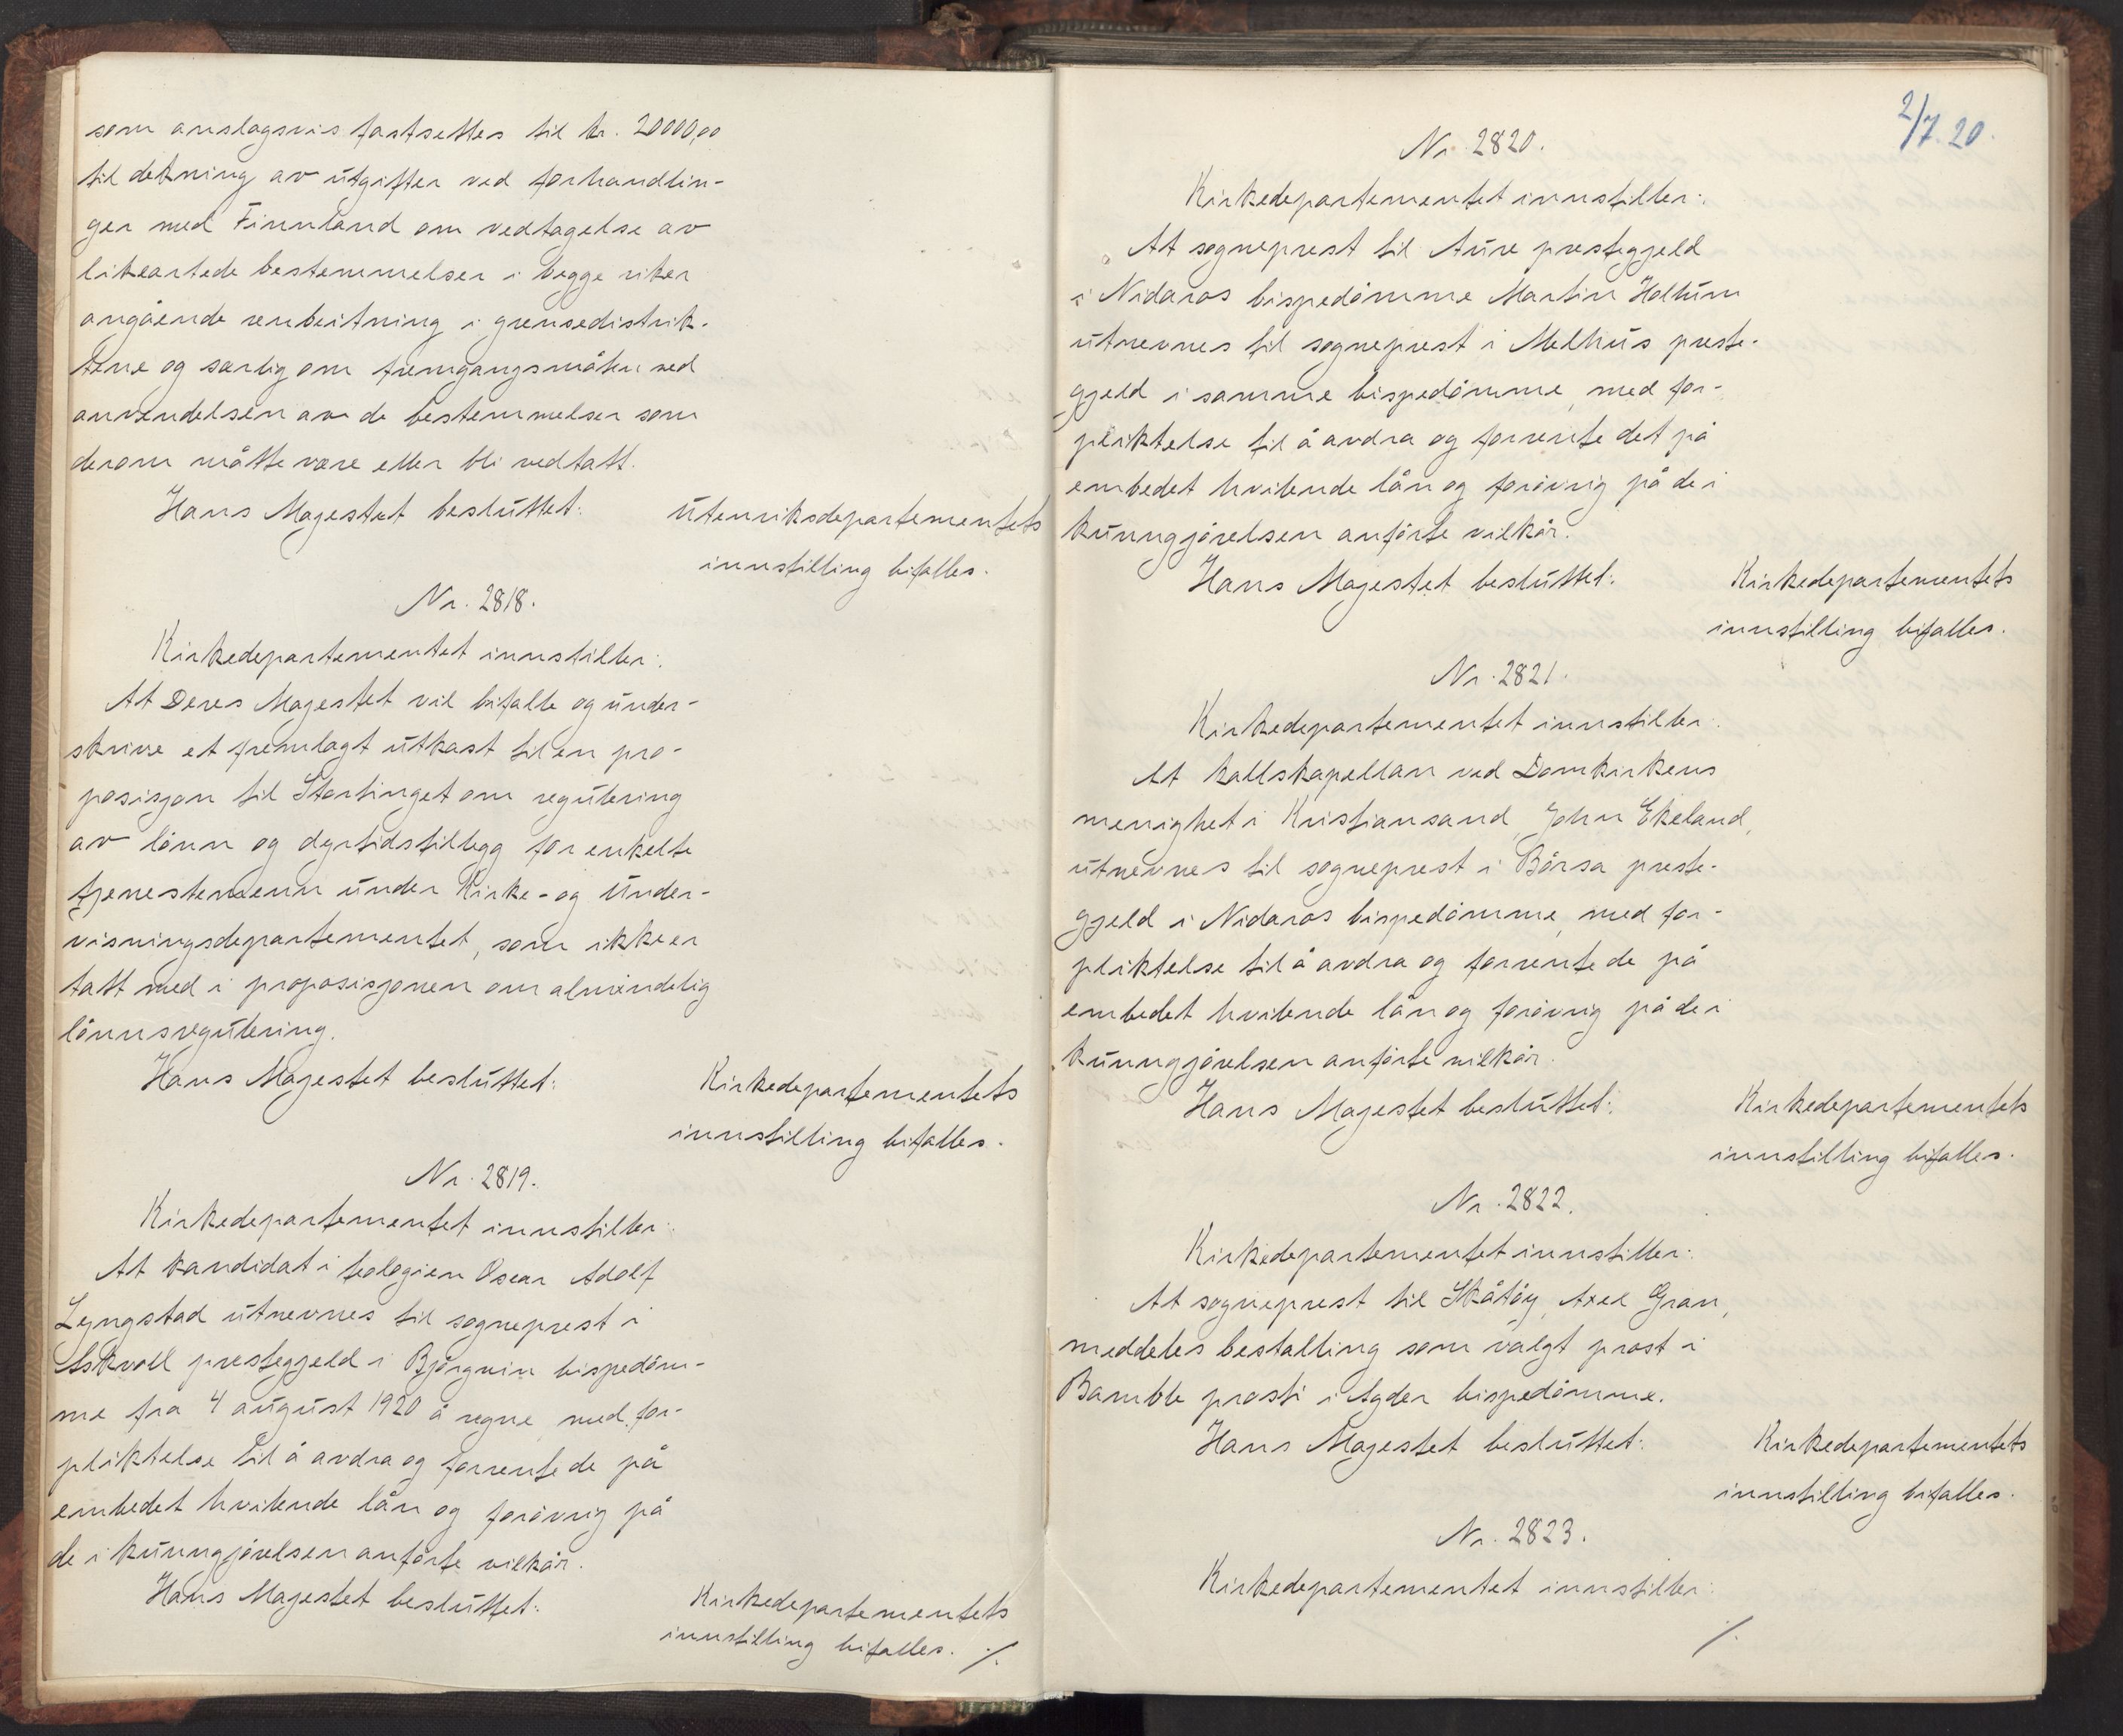 som anslagsvis fastsettes til kr. 20000,00
til dekning av utgifter ved forhandlin-
ger med Finnland om vedtagelse av
likeartede bestemmelser i begge riker
angående renbeitning i grensedistrik-
tene og særlig om fremgangsmåten ved
anvendelsen av de bestemmelser som
derom måtte være eller bli vedtatt.
Hans Majestet besluttet:
Utenriksdepartementets
innstilling bifalles.
Nr. 2818.
Kirkedepartementet innstiller:
At Deres Majestet vil bifalle og under-
skrive et fremlagt utkast til en pro-
posisjon til Stortinget om regulering
av lönn og dyrtidstillegg for enkelte
tjenestemenn under Kirke- og Under-
visningsdepartementet, som ikke er
tatt med i proposisjonen om almindelig
lönnsregulering.
Hans Majestet besluttet:
Kirkedepartementets
innstilling bifalles.
Nr. 2819.
Kirkedepartementet innstiller:
At kandidat i teologien Oscar Adolf
Lyngstad utnevnes til sogneprest i
Askvoll prestegjeld i Björgvin bispedöm-
me fra 4 august 1920 å regne, med for-
pliktelse til å avdra og forrente de på
embedet hvilende lån og forövrig på
de i kunngjörelsen anförte vilkår.
Hans Majestet besluttet:
Kirkedepartementets
innstilling bifalles. ./.
2/7.20.
Nr. 2820.
Kirkedepartementet innstiller:
At sogneprest til Aure prestegjeld
i Nidaros bispedömme Martin Holtum
utnevnes til sogneprest i Melhus preste-
gjeld i samme bispedömme, med for-
pliktelse til å avdra og forrente det på
embedet hvilende lån og forövrig på de i
kunngjörelsen anförte vilkår.
Hans Majestet besluttet:
Kirkedepartementets
innstilling bifalles.
Nr. 2821.
Kirkedepartementet innstiller:
At kallskapellan ved Domkirkens
menighet i Kristiansand, John Ekeland,
utnevnes til sogneprest i Börsa preste-
gjeld i Nidaros bispedömme, med for-
pliktelse til å avdra og forrente de på
embedet hvilende lån og forövrig på de i
kunngjörelsen anförte vilkår.
Hans Majestet besluttet:
Kirkedepartementets
innstilling bifalles.
Nr. 2822.
Kirkedepartementet innstiller:
At sogneprest til Skåtöy, Axel Gran,
meddeles bestalling som valgt prost i
Bamble prosti i Agder bispedömme.
Hans Majestet besluttet:
Kirkedepartementets
innstilling bifalles.
Nr. 2823.
Kirkedepartementet innstiller:
./.